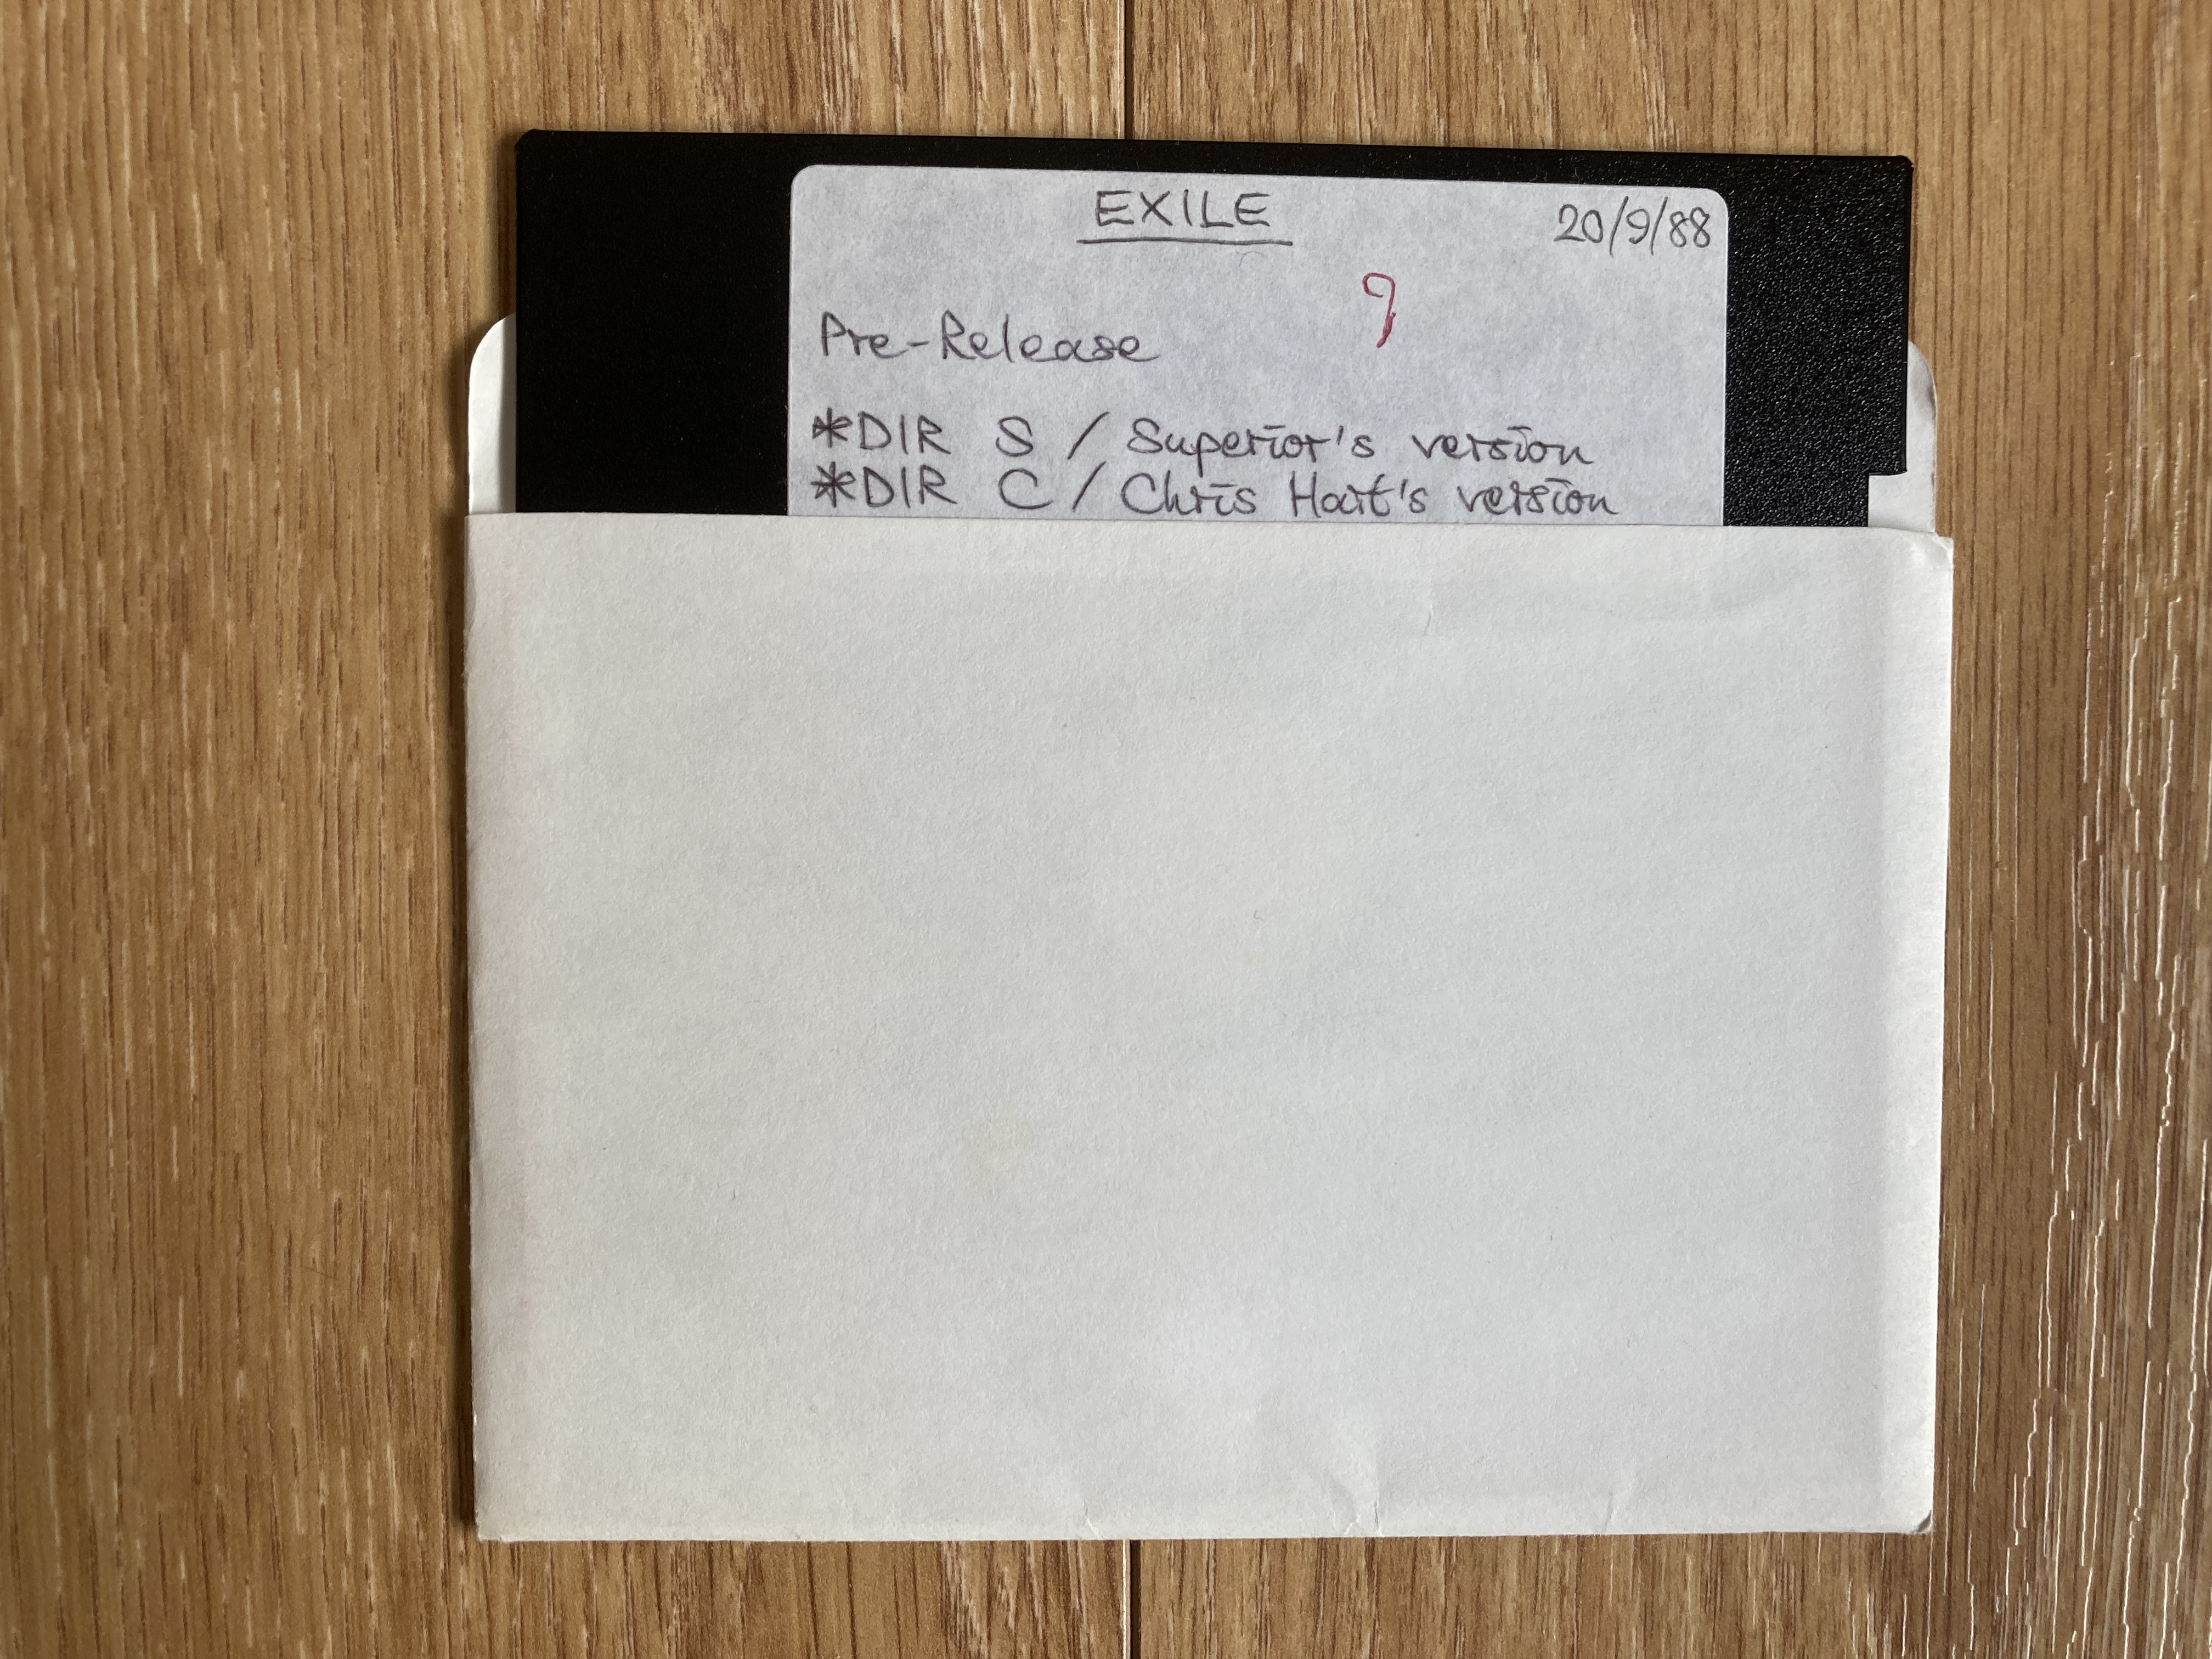 EXILE 20/9/88
9
Pre-Release
*DIR S / Superior's version
*DIR C / Chris Hart's version